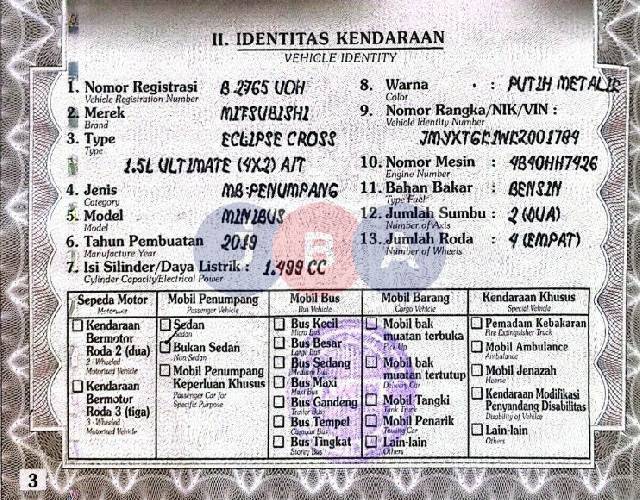 II. IDENTITAS KENDARAAN
VEHICLE IDENTITY
1. Nomor Registrasi B 2765 UOH
Vehicle Registration Number
2. Merek MITSUBISHI
Brand
3. Type ECLIPSE CROSS
Type
1.5L ULTIMATE (4X2) A/T
4. Jenis MB.PENUMPANG
Category
5. Model MINIBUS
Model
6. Tahun Pembuatan 2019
Manufacture Year
7. Isi Silinder/Daya Listrik : 1.499 CC
Cylinder Capacity/Electrical Power
8. Warna : PUTIH METALIK
Color
9. Nomor Rangka/NIK/VIN :
Vehicle Identity Number
10. Nomor Mesin : 4B40HH7426
Engine Number
11. Bahan Bakar : BENSIN
Type Fuel
12. Jumlah Sumbu : 2 (DUA)
Number of Axis
13. Jumlah Roda : 4 (EMPAT)
Number of Wheels
JBA
Sepeda Motor
Motorcycle
Kendaraan
Bermotor
Roda 2 (dua)
2 - Wheeled
Motorized Vehicle
Kendaraan
Bermotor
Roda 3 (tiga)
3 - Wheeled
Motorized Vehicle
Mobil Penumpang
Passenger Vehicle
Sedan
Sedan
Bukan Sedan
Non Sedan
Mobil Penumpang
Keperluan Khusus
Passenger Car for
Specific Purpose
Mobil Bus
Bus Vehicle
Bus Kecil
Micro Bus
Bus Besar
Large Bus
Bus Sedang
Medium Bus
Bus Maxi
Maxi Bus
Bus Gandeng
Bus Tempel
Bus Tingkat
Mobil Barang
Cargo Vehicle
Mobil bak
muatan terbuka
Pick Up
Mobil bak
muatan tertutup
Delivery Car
Mobil Tangki
Tank Truck
Mobil Penarik
Towing Car
Lain-lain
Others
Kendaraan Khusus
Special Vehicle
Pemadam Kebakaran
Fire Extinguisher Truck
Mobil Ambulance
Ambulance
Mobil Jenazah
Hearse
Kendaraan Modifikasi
Penyandang Disabilitas
Disability of Vehicle
Lain-lain
Others
3